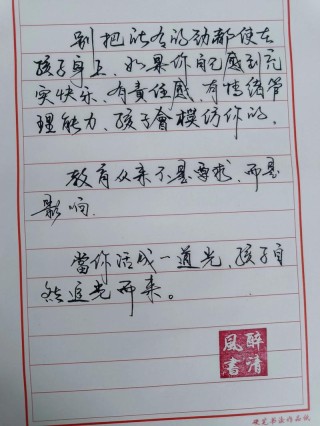 别把所有的劲都使在
孩子身上，如果你自己感到充
实快乐，有責任感，有情绪管
理能力，孩子會模仿你的。
教育从来不是要求，而是
影响。
當你活成一道光，孩子自
然追光而来。
醉清
風書
硬笔书法作品纸